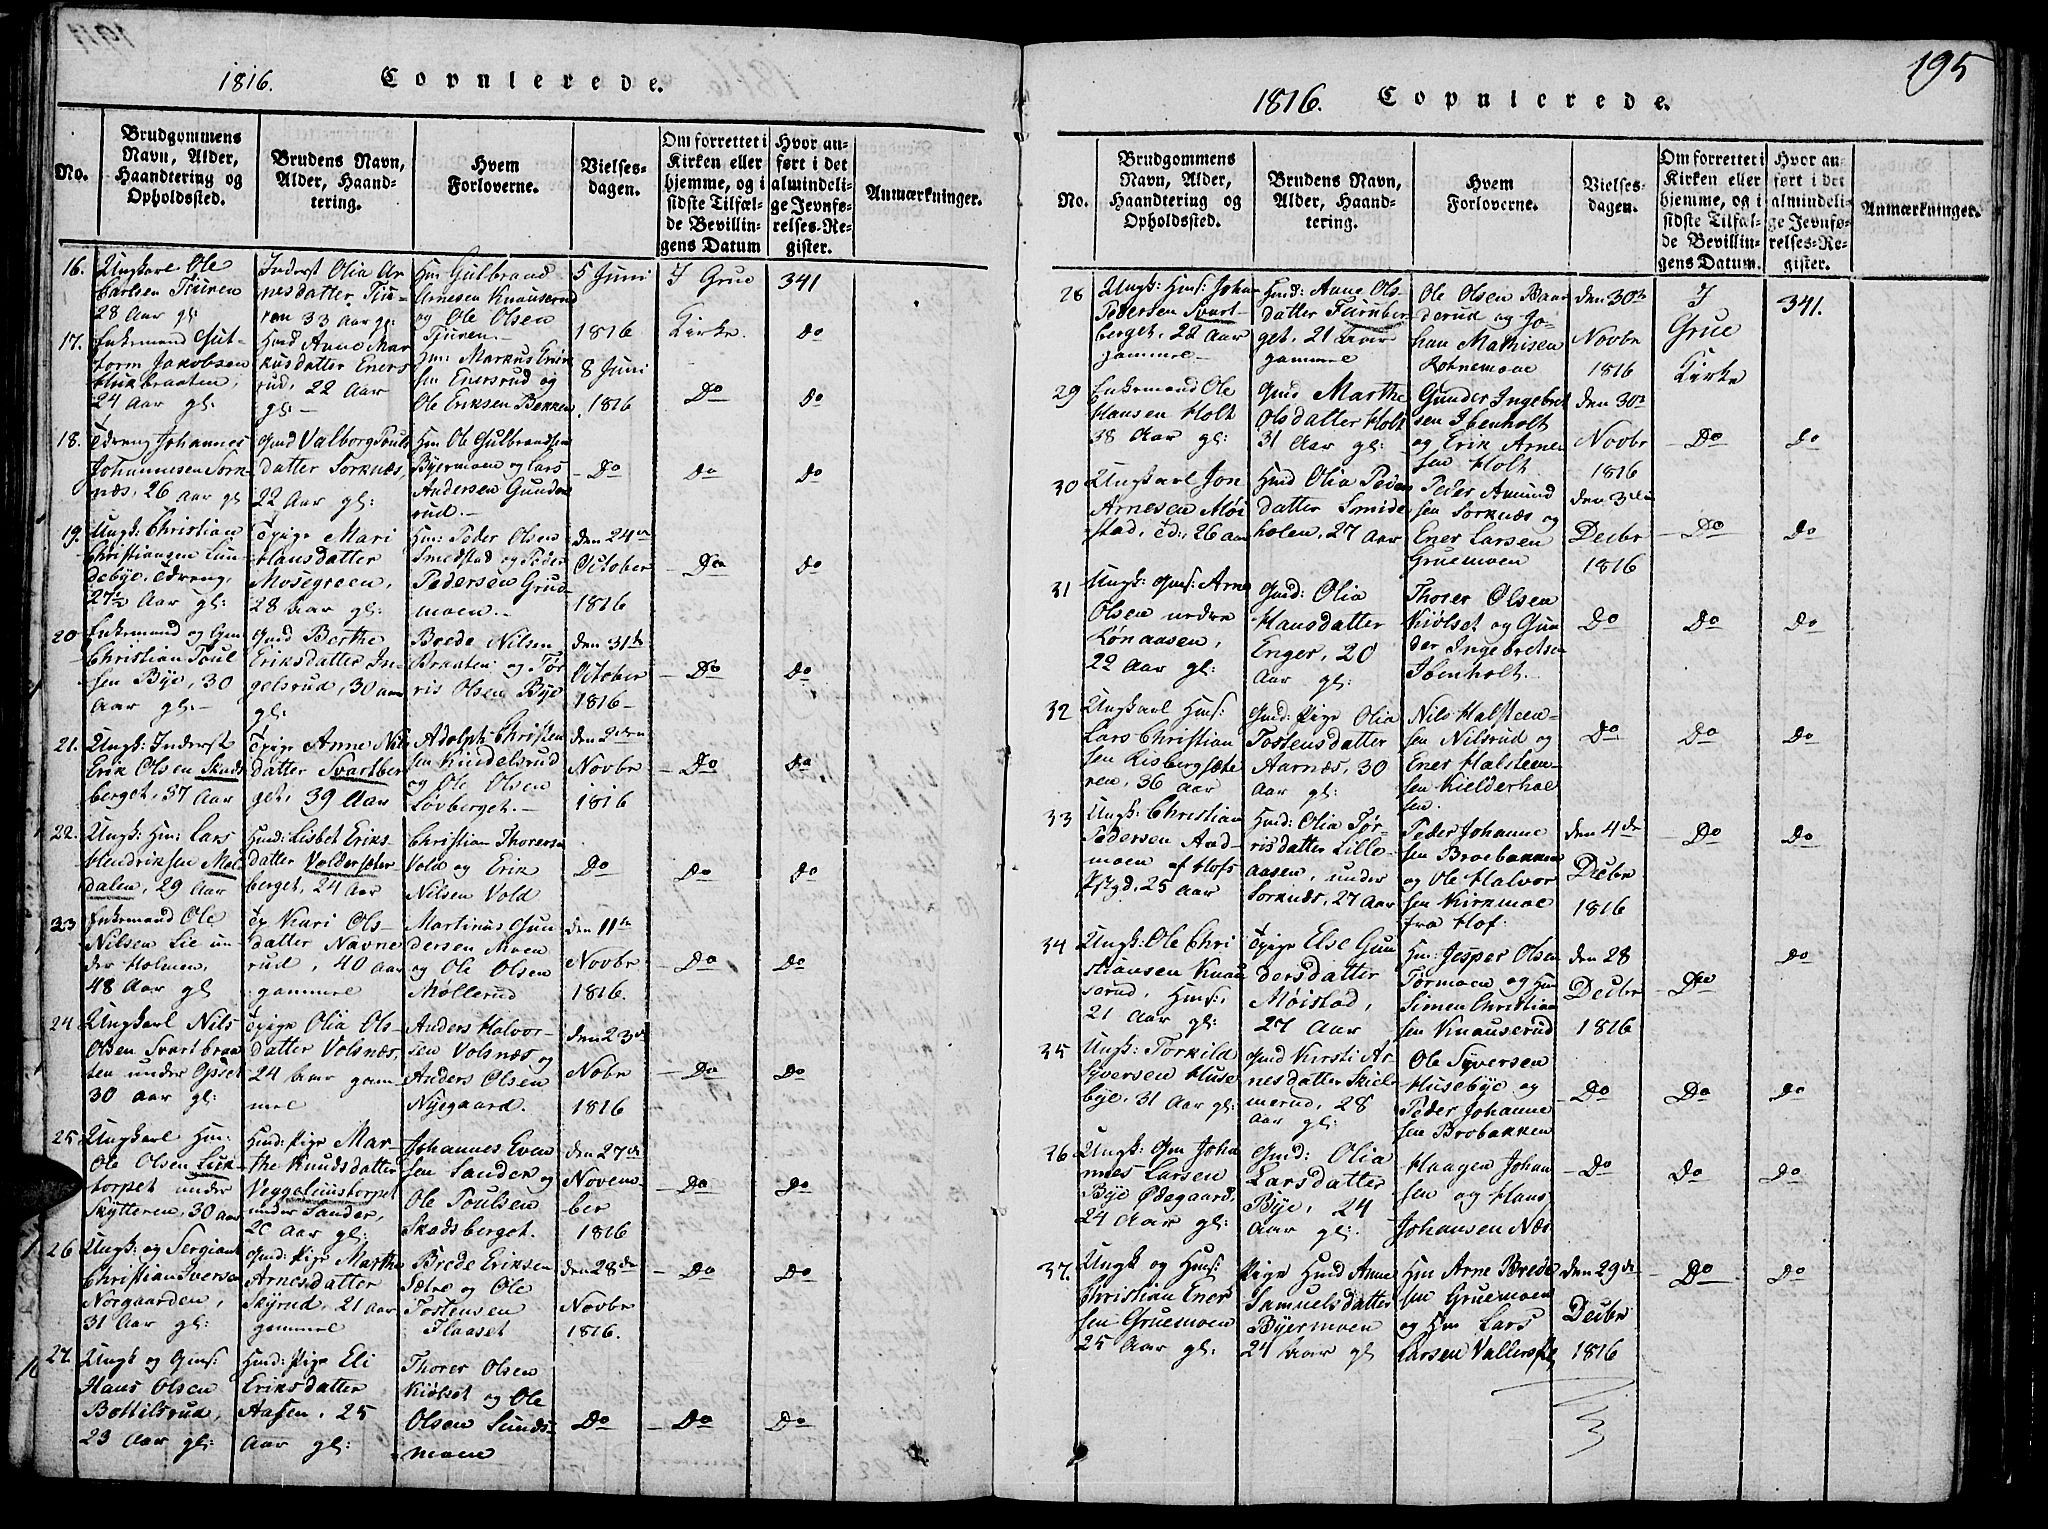 1816. Copulerede.
No.
Brudgommens
Navn, Alder,
Haandtering og
Opholdssted.
Brudens Navn,
Alder, Haand-
tering.
Hvem
Forloverne.
Vielses-
dagen.
Om forrettet i
Kirken eller
hjemme, og i
sidste Tilfæl-
de Bevillin-
gens Datum
Hvor an-
ført i det
almindeli-
ge Jevnfø-
relses-Re-
gister.
Anmærkninger.
16.
Ungkarl Ole
Carlsen Tjuren
28 Aar gl:
Inderst Olia Ar
nesdatter Tju-
ren 33 Aar gl:
Hm: Gulbrand
Arnesen Knauserud
og Ole Olsen
Tjuren.
5 Juni
1816
I Grue
Kirke.
341
17.
Enkemand Gut-
torm Jakobsen
braaten,
24 Aar gl:
Hmd Anne Mar
kusdatter Eners
rud, 22 Aar
gl:
Hm: Markus Erik
sen Enersrud og
Ole Eriksen Bekken
8 Juni
1816
Do
Do
Do
18.
Tdreng Johannes
Johannesen Sork-
næs, 26 Aar gl
Gmd Valborg Pouls
datter Sorknæs,
22 Aar gl:
Hm Ole Gulbrandsen
Byermoen og Lars
Andersen Gunde
rud.
Do
Do
Do
19.
Ungk: Christian
Christiansen Lun
debye, Tdreng,
27½ Aar gl:
Tpige Mari
Hansdatter
Mosegroen,
28 Aar gl:
Hm: Peder Olsen
Smedstad og Peder
Pedersen Grue
moen.
den 24de
October
1816
Do
Do
20
Enkemand og Gm
Christian Poul
sen Bye, 30
Aar gl:
Gmd Berthe
Eriksdatter In-
gelsrud, 30 aar
gl:
Brede Nilsen
Braaten og Tør
ris Olsen Bye
den 31te
October
1816
Do
Do
21.
Ungk: Inderst
Erik Olsen Skads
berget, 37 Aar
Tpige Anne Nils
datter Svartber
get, 39 Aar
Adolph Christen
sen Kindelsrud
og Ole Olsen
Løvberget.
den 2den
Novbr
1816
Do
Do
22.
Ungk: Hm: Lars
Hendriksen Mol
dalen, 29 Aar
Hmd: Lisbet Eriks
datter Voldersæter
berget, 24 Aar
Christian Thoresen
Vold og Erik
Nilsen Vold
Do
Do
Do
23
Enkemand Ole
Nilsen Lie un-
der Holmen,
48 Aar gl
Tp Kari Ols-
datter Navne
rud, 40 Aar
gammel
Martinus Gun
dersen Moen
og Ole Olsen
Møllerud
den 11te
Novbr
1816.
Do
Do
24
Ungkarl Nils
Olsen Svartbraa
ten under Opset
30 Aar gl:
Tpige Olia Ols-
datter Volsnæs,
24 Aar gam
mel
Anders Halvor-
sen Volsnæs og
Anders Olsen
Nyegaard.
den 23de
Nobr
1816
Do
Do
25
Ungkarl Hm:
Ole Olsen
torpet under
Skytteren, 30 aar
Hmd: Pige Mar-
the Knudsdatter
Veggeliustorpet
under Sander,
20 Aar gl:
Johannes Even
sen Sander og
Ole Poulsen
Skadsberget.
den 27de
Novem
ber
1816
Do
Do
26
Ungk: og Sergiant
Christian Iversen
Norgaarden,
31 Aar gl:
Gmd: Pige Marthe
Arnesdatter
Skyrud, 21 aar
gammel
Brede Eriksen
Sætre og Ole
Tostensen
Flaaset
den 28de
Novbr
1816.
Do
Do
27.
Ungk og Gms:
Hans Olsen
Bottilsrud,
23 Aar gl:
Hmd: Pige Eli
Eriksdatter
Aasen, 25
Aar gl:
Thorer Olsen
Kiølset og Ole
Olsen Sunds-
moen
Do
Do
Do
195
1816. Copulerede.
No.
Brudgommens
Navn, Alder,
Haandtering og
Opholdssted.
Brudens Navn,
Alder, Haand-
tering.
Hvem
Forloverne.
Vielses-
dagen.
Om forrettet i
Kirken eller
hjemme, og i
sidste Tilfæl-
de Bevillin-
gens Datum.
Hvor an-
ført i det
almindeli-
ge Jevnfø-
relses-Re-
gister.
Anmærkninger.
28
Ungk: Hms: Johan
Pedersen Svart-
berget, 22 Aar
gammel
Hmd: Anne Ols-
datter Furuber
get, 21 Aar
gammel
Ole Olsen Baar
derud og Jo-
han Mathisen
Kornemoe
den 30te
Novbr
1816
I
Grue
Kirke
341.
29
Enkemand Ole
Hansen Holt
38 Aar gl:
Gmd Marthe
Olsdatter Holt
31 Aar gl:
Gunder Ingebret
sen Ibenholt
og Erik Arne
sen Holt
den 30te
Novbr
1816
Do
Do
30
Ungkarl Jon
Arnesen Møi
stad, Td:, 26 aar
Hmd Olia Peder
datter Smide
holen, 27 Aar
Peder Amund
sen Sorknæs og
Ener Larsen
Gruemoen
den 3die
Decbr
1816
Do
Do
31
Ungk: Gms: Arne
Olsen nedre
Lønaasen,
22 Aar gl:
Gmd: Olia
Hansdatter
Enger, 20
Aar gl:
Thorer Olsen
Kiølset og Gun
der Ingebretsen
Ibenholt.
Do
Do
Do
32
Ungkarl Hms:
Lars Christian
sen Risbergsæte
ren, 36 Aar
Gmd: Pige Olia
Tostensdatter
Aarnæs, 30
Aar gl:
Nils Halsteen-
sen Nilsrud og
Ener Halsteen-
sen Kielderhol
sen.
Do
Do
Do
33
Ungk: Christian
Pedersen And-
moen af Hofs
Pstgd, 25 Aar
Hmd: Olia Tør-
risdatter Lille-
aasen, under
Sorknæs, 27 Aar
Peder Johanne
sen Broebakken
og Ole Halvor
sen Kirkmoe
fra Hof:
den 4de
Decbr
1816
Do
Do
34
Ungk: Ole Chri
stiansen Knau
serud, Hms:,
21 Aar gl:
Tpige Else Gun
dersdatter
Møistad,
27 Aar
Hm: Jesper Olsen
Tørmoen og Hm
Simen Christian
sen Knauserud
den 28
Decbr
1816
Do
Do
35
Ungk: Torkild
Syversen Huse
bye, 31 Aar gl:
Gmd Kersti Ar
nesdatter Skiel-
merud, 28
Aar gl:
Ole Syversen
Husebye og
Peder Johanne
sen Brobakken
Do
Do
Do
36
Ungk: Gm Joha
nnes Larsen
Bye Ødegaard,
24 Aar gl:
Gmd: Olia
Larsdatter
Bye, 24
Aar gl:
Haagen Johan
sen og Hans
Johansen Næs
Do
Do
Do
37.
Ungk og Hms:
Christian Ener
sen Gruemoen
25 Aar gl:
Pige Hmd Anne
Samuelsdatter
Byermoen
24 Aar gl
Hm Arne Brede
sen Gruemoen
og Hm Lars
Larsen
den 29de
Decbr
1816
Do
Do